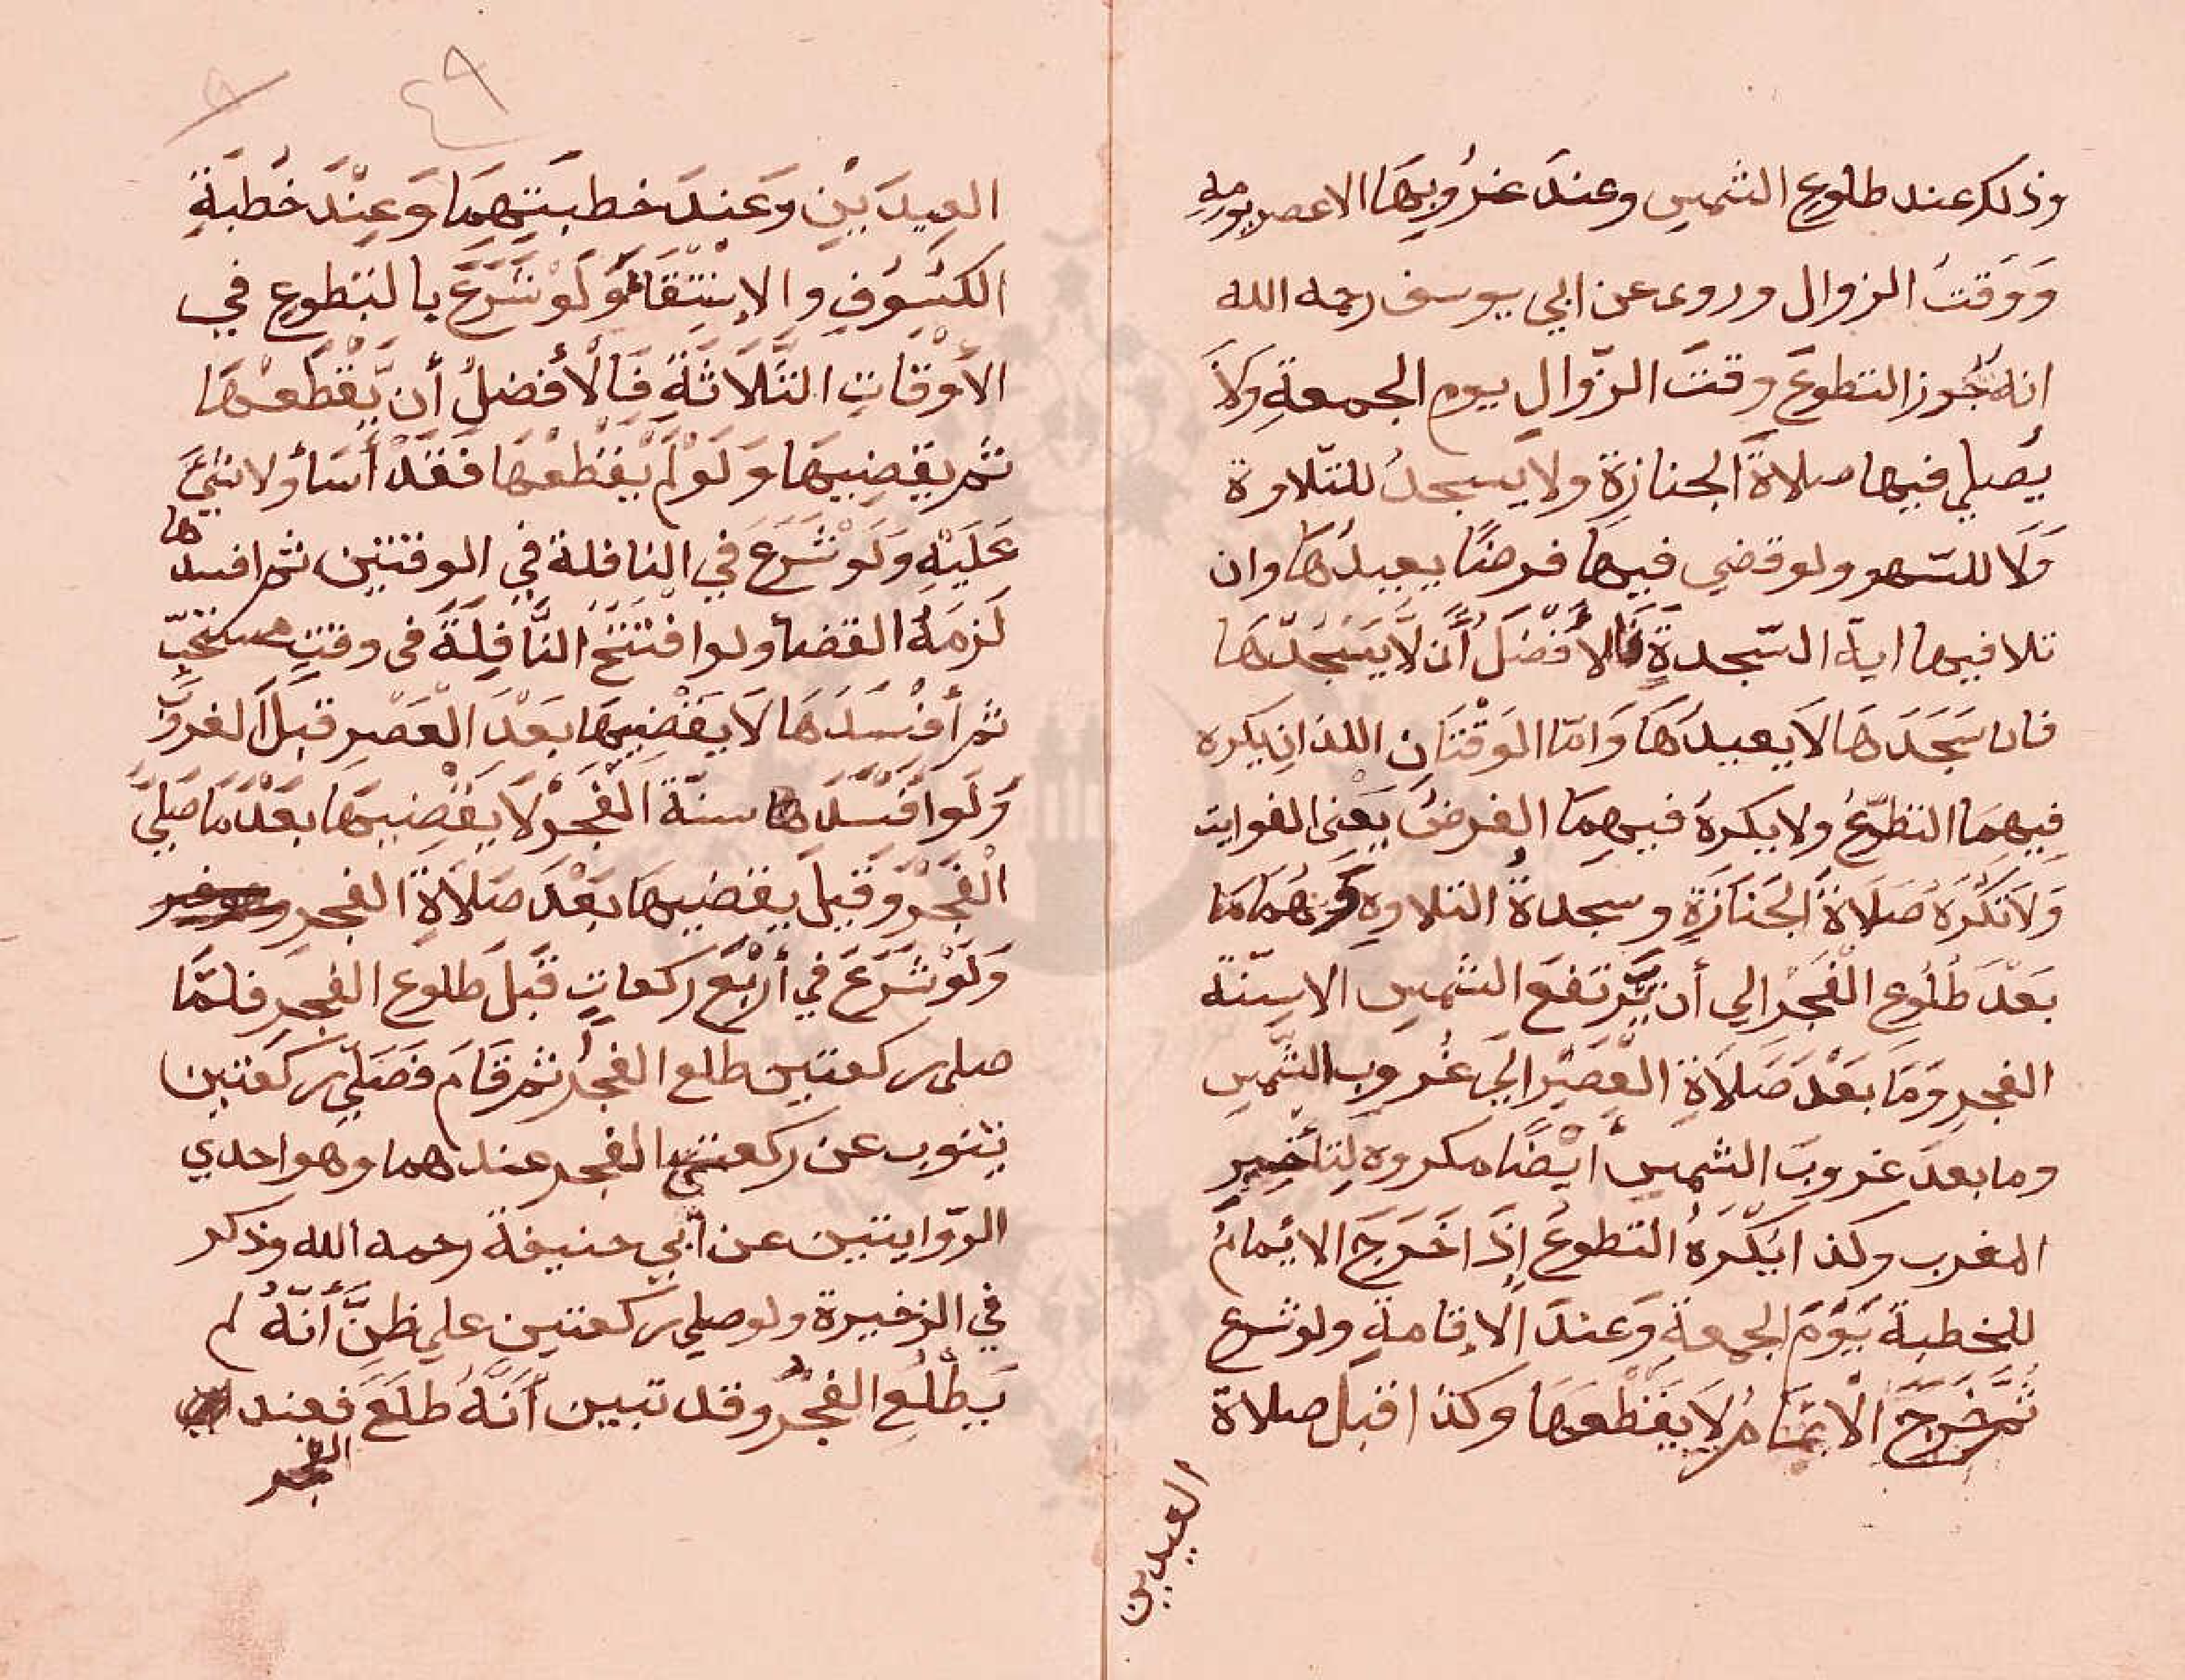 وذلك عند طلوع الشمس وعندَ غرُوبِهَا الاعصر يومه
وَوَقتُ الزوال وروى عن ابي يوسف رحمه الله
انه جُوز التطوعَ وقتَ الزّوالِ يوم الجمعةِ وَلاَ
يُصلي فيها صلاةَ الجنازةِ ولا يسجدُ للتّلاوة
وَلَا للسّهو ولو قضي فيها فرضًا يعيدُهَا وان
تلا فيها اية السّجدةِ فَالأفضَلُ أَن لَّا يَسْجُدَهَا
فان سَجَدَهَا لاَ يعيدَهَا وَامّا الوَقْتَانِ اللذانِ يكره
فِيهِمَا التطَوّعُ ولا يكرهُ فيهِمَا الفرضُ يَعْنِى الفوايت
وَلاَ تكْرَهُ صَلاَةُ الجَنَازَةِ وسجدةُ التلاوةِ وَهُمَا مَا
بَعْدَ طُلُوعِ الْفَجْرِ الي أن تَرتَفعَ الشمس الاسنّة
الفجرِ وَمَا بَعْدَ صَلاَةِ الْعَصْرِ الَي غُروبِ الشّمسِ
وما بعدَ غروبِ الشمسِ أيْضًا مكروه لِتأخيرِ
المغرب وكذا يَكْرَهُ التطوعُ إِذَا خَرَجَ الايمامُ
للخطبة يَوْمَ الجمعةِ وَعندَ الإقامةِ ولو شرع
ثُمَّ خَرَجَ الْايمَامُ لاَ يَقْطعهَا وكذا قبل صلاة
العيدين
٤٩
العِيدَيْنِ وَعَندَ خطبتِهمَا وَعِنْدَ خُطبَةِ
الكسُوفِ والإستِسْقَاءِ وَلَوْ شَرَعَ بالتطوعِ في
الأوْقاتِ الثّلاثةِ فَالْأفضلُ أن يَّقْطَعهَا
ثم يقضِيهَا وَلَوْ لم يَقْطعهَا فَقَدْ أسَاءَ ولا شيءَ
عَلَيْهِ وَلَوْ شَرَعَ في النافلة في الوقتين ثم افسدها
لَزمَهُ القضاء ولوا فتتح النَّافِلَةَ فى وقتٍ مستحبّ
ثم أفْسَدَهَا لاَ يَقْضِيهَا بعَدَ الْعَصْرِ قبلَ الغروب
وَلَوا فْسَدَها سنّة الْفَجْرِ لاَ يَقْضِيهَا بَعْدَ مَا صَلَّي
الْفَجْرَ وَقِيلَ يقضيهَا بَعْدَ صَلاَةِ الفجر
وَلَوْ شَرَعَ في أرْبَع ركعاتٍ قَبلَ طلوع الفجرِ فلمّا
صلى ركعتين طلع الفجرُ ثم قَامَ فَصَلّي ركعتين
يَنوب عن ركعتي الفجر عندهما وهو احدي
الرّوايتين عن أبي حنيفة رحمه الله وذكر
في الزخيرة ولو صلي ركعتين علي ظنّ أَنّهُ لم
يَطلُعِ الفجْرُ وقد تبين أَنَّهُ طَلَعَ فعند
الفجر